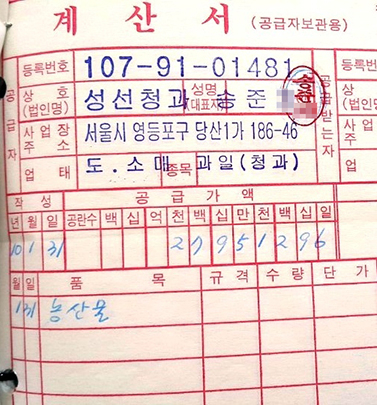 계산서 (공급자보관용)
등록번호 107-91-01481
공급자
상호(법인명) 성선청과 성명(대표자) 송준
사업장주소 서울시 영등포구 당산1가 186-46
업태 도.소매 종목 과일(청과)
공급받는자
등록번호
상호(법인명)
사업장주소
업태
작성 공급가액
년 월 일 공란수 백 십 억 천 백 십 만 천 백 십 일
10 1 31 2 7 9 5 1 2 9 6
월 일 품목 규격 수량 단가
1 31 농산물